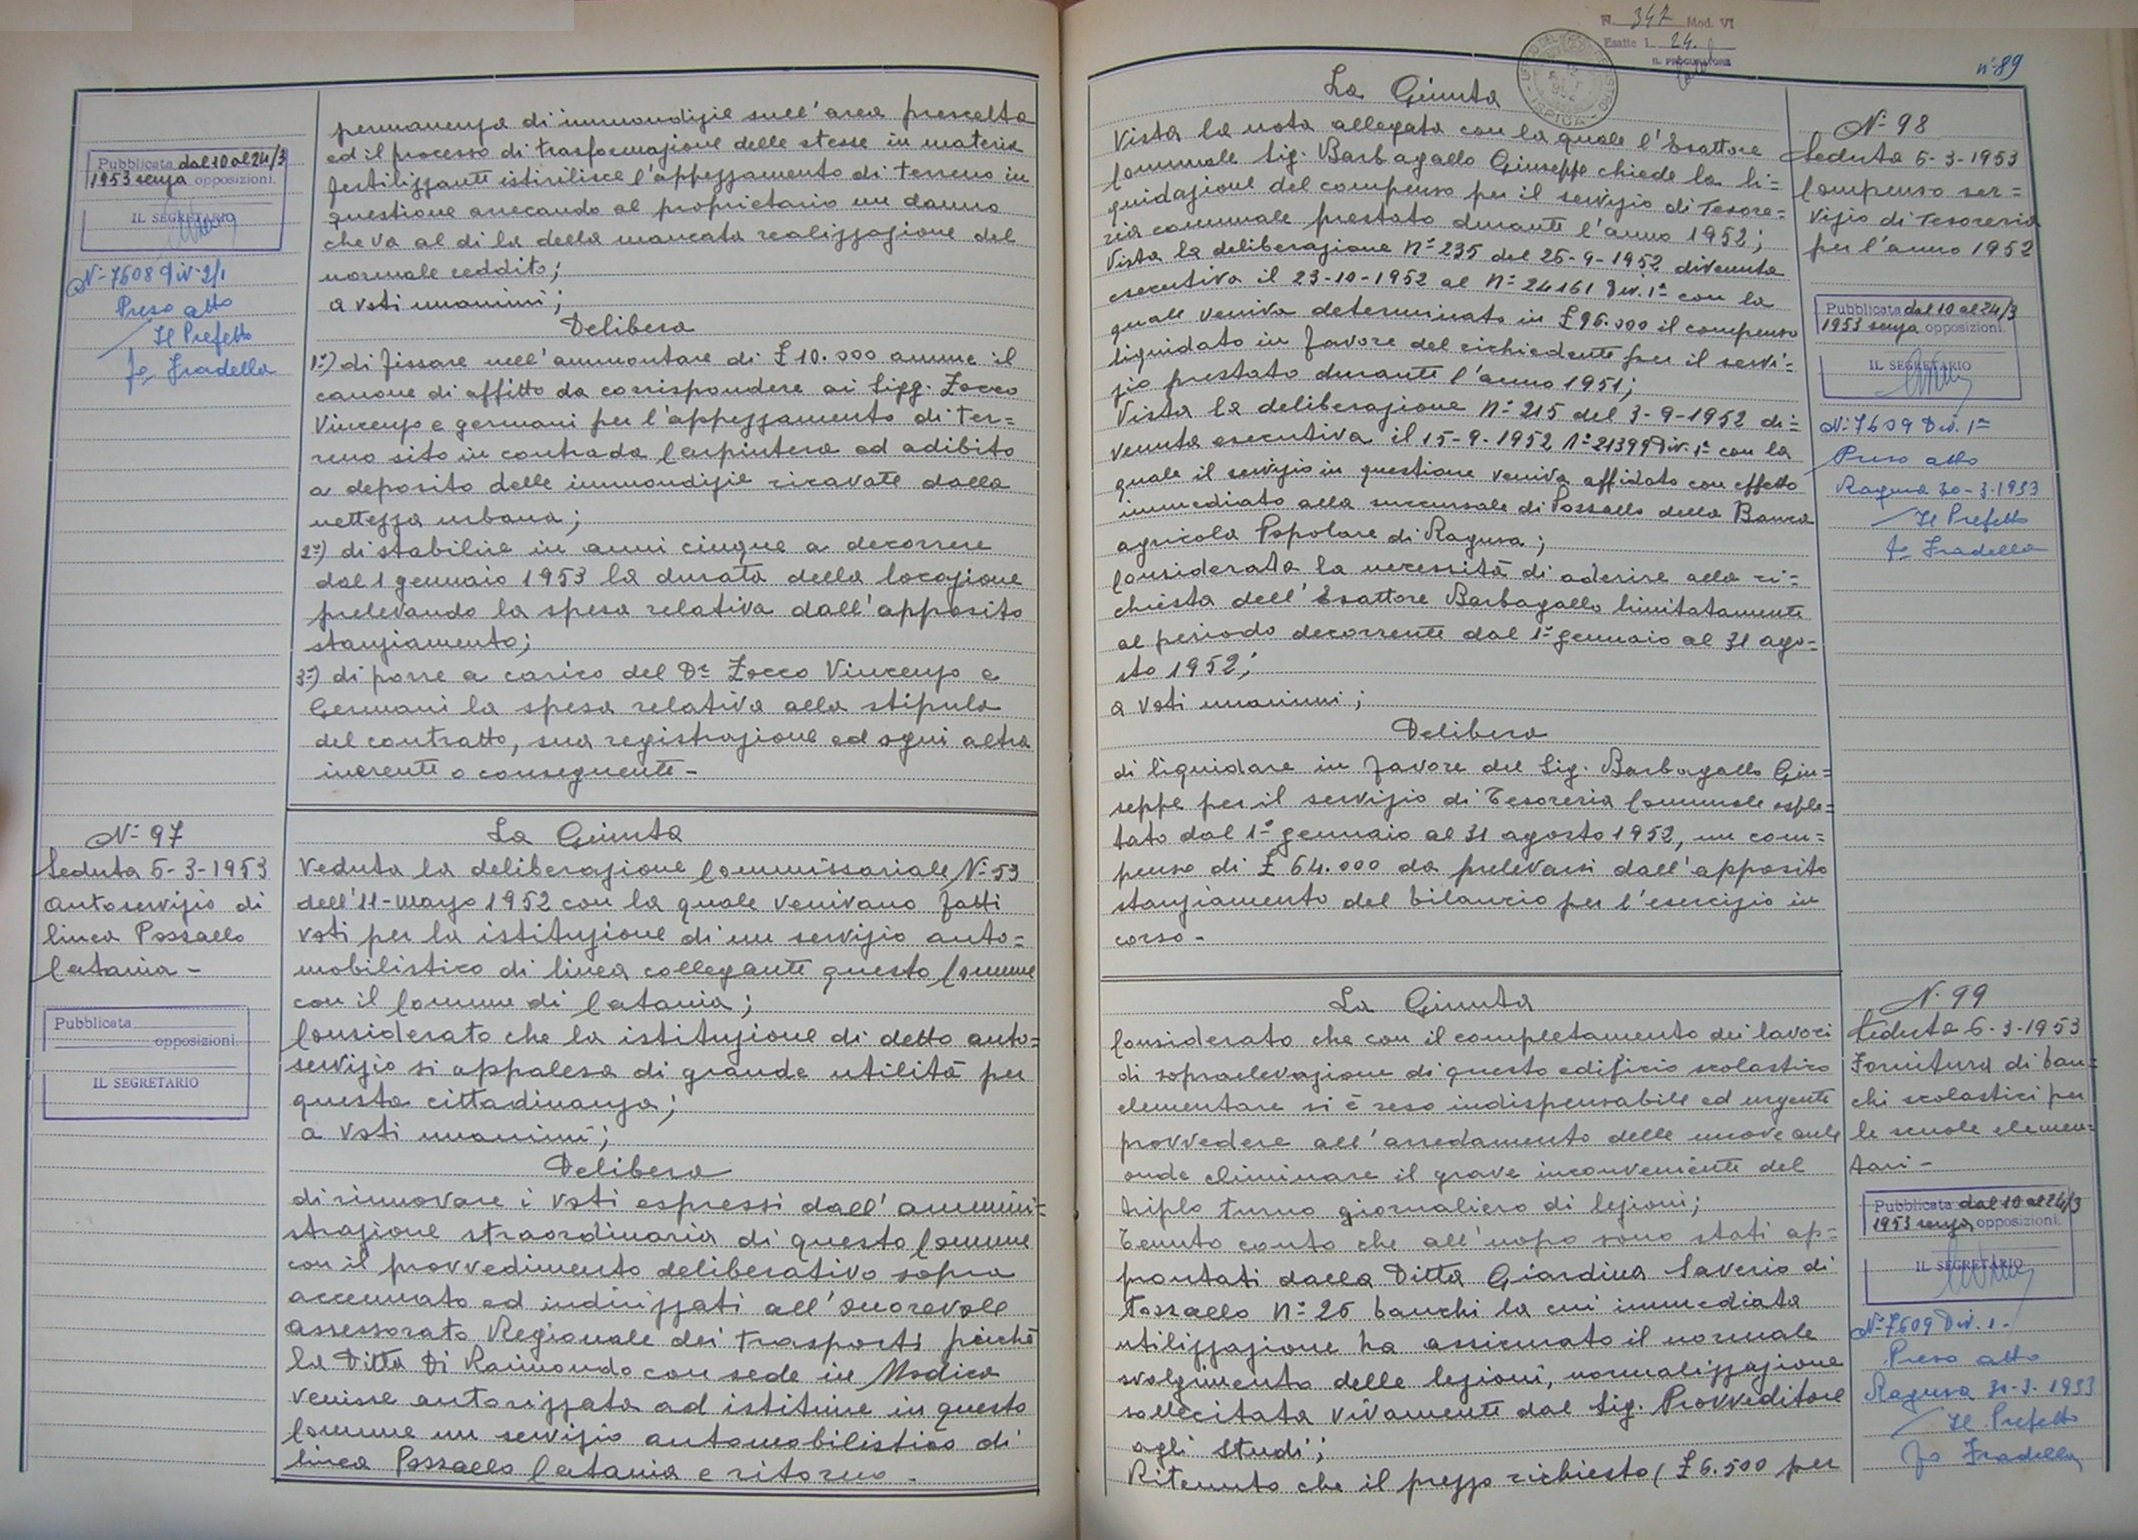 Pubblicata dal 10 al 24/3
1953 senza opposizioni.
IL SEGRETARIO
N. 7608 Div. 2/1
Preso atto
Il Prefetto
Fradella
permanenza di immondizie sull'area prescelta
ed il processo di trasformazione delle stesse in materia
fertilizzante isterilisce l'appezzamento di terreno in
questione arrecando al proprietario un danno
che va al di la della mancata realizzazione del
normale reddito;
a voti unanimi;
Delibera
1°) di fissare nell'ammontare di £ 10.000 annue il
canone di affitto da corrispondere ai Sigg. Zocco
Vincenzo e germani per l'appezzamento di ter=
reno sito in contrada Carpintera ed adibito
a deposito delle immondizie ricavate dalla
nettezza urbana;
2°) di stabilire in anni cinque a decorrere
dal 1 gennaio 1953 la durata della locazione
prelevando la spesa relativa dall'apposito
stanziamento;
3°) di porre a carico del Dr Zocco Vincenzo e
Germani la spesa relativa alla stipula
del contratto, sua registrazione ed ogni altra
inerente o conseguente -
N. 97
Seduta 6-3-1953
Autoservizio di
linea Pozzallo
Catania -
Pubblicata
opposizioni.
IL SEGRETARIO
La Giunta
Veduta la deliberazione Commissariale N. 53
dell'11-marzo 1952 con la quale venivano fatti
voti per la istituzione di un servizio auto=
mobilistico di linea collegante questo Comune
con il Comune di Catania;
Considerato che la istituzione di detto auto=
servizio si appalesa di grande utilità per
questa cittadinanza;
a voti unanimi;
Delibera
di rinnovare i voti espressi dall'ammini=
strazione straordinaria di questo Comune
con il provvedimento deliberativo sopra
accennato ed indirizzati all'onorevole
assessorato Regionale dei trasporti perchè
la Ditta Di Raimondo con sede in Modica
venisse autorizzata ad istituire in questo
Comune un servizio automobilistico di
linea Pozzallo Catania e ritorno.
N. 347 Mod. VI
Esatte L. 24.
IL PROCURATORE
ISPICA
n° 89
La Giunta
Vista la nota allegata con la quale l'Esattore
Comunale Sig. Barbagallo Giuseppe chiede la li=
quidazione del compenso per il servizio di Tesore=
ria comunale prestato durante l'anno 1952;
Vista la deliberazione N° 235 del 26-9-1952 divenuta
esecutiva il 23-10-1952 al N° 24161 Div. 1ª con la
quale veniva determinato in £ 96.000 il compenso
liquidato in favore del richiedente per il servi=
zio prestato durante l'anno 1951;
Vista la deliberazione N° 215 del 3-9-1952 di=
venuta esecutiva il 15-9-1952 N° 21399 Div. 1ª con la
quale il servizio in questione veniva affidato con effetto
immediato alla succursale di Pozzallo della Banca
agricola Popolare di Ragusa;
Considerata la necessità di aderire alla ri=
chiesta dell'Esattore Barbagallo limitatamente
al periodo decorrente dal 1° gennaio al 31 ago=
sto 1952;
a voti unanimi;
Delibera
di liquidare in favore del Sig. Barbagallo Giu=
seppe per il servizio di Tesoreria Comunale esple=
tato dal 1° gennaio al 31 agosto 1952, un com=
penso di £ 64.000 da prelevarsi dall'apposito
stanziamento del bilancio per l'esercizio in
corso -
N. 98
Seduta 6-3-1953
Compenso ser=
vizio di Tesoreria
per l'anno 1952
Pubblicata dal 10 al 24/3
1953 senza opposizioni.
IL SEGRETARIO
N. 7609 Div. 1ª
Preso atto
Ragusa 30-3-1953
Il Prefetto
Fradella
La Giunta
Considerato che con il completamento dei lavori
di sopraelevazione di questo edificio scolastico
elementare si è reso indispensabile ed urgente
provvedere all'arredamento delle nuove aule
onde eliminare il grave inconveniente del
triplo turno giornaliero di lezioni;
Tenuto conto che all'uopo sono stati ap=
prontati dalla Ditta Giardina Saverio di
Pozzallo N° 26 banchi la cui immediata
utilizzazione ha assicurato il normale
svolgimento delle lezioni, normalizzazione
sollecitata vivamente dal Sig. Provveditore
agli Studi;
Ritenuto che il prezzo richiesto (£ 6.500 per
N. 99
Seduta 6-3-1953
Fornitura di ban=
chi scolastici per
le scuole elemen=
tari -
Pubblicata dal 10 al 24/3
1953 senza opposizioni.
IL SEGRETARIO
N. 7609 Div. 1.
Preso atto
Ragusa 30-3-1953
Il Prefetto
Fradella